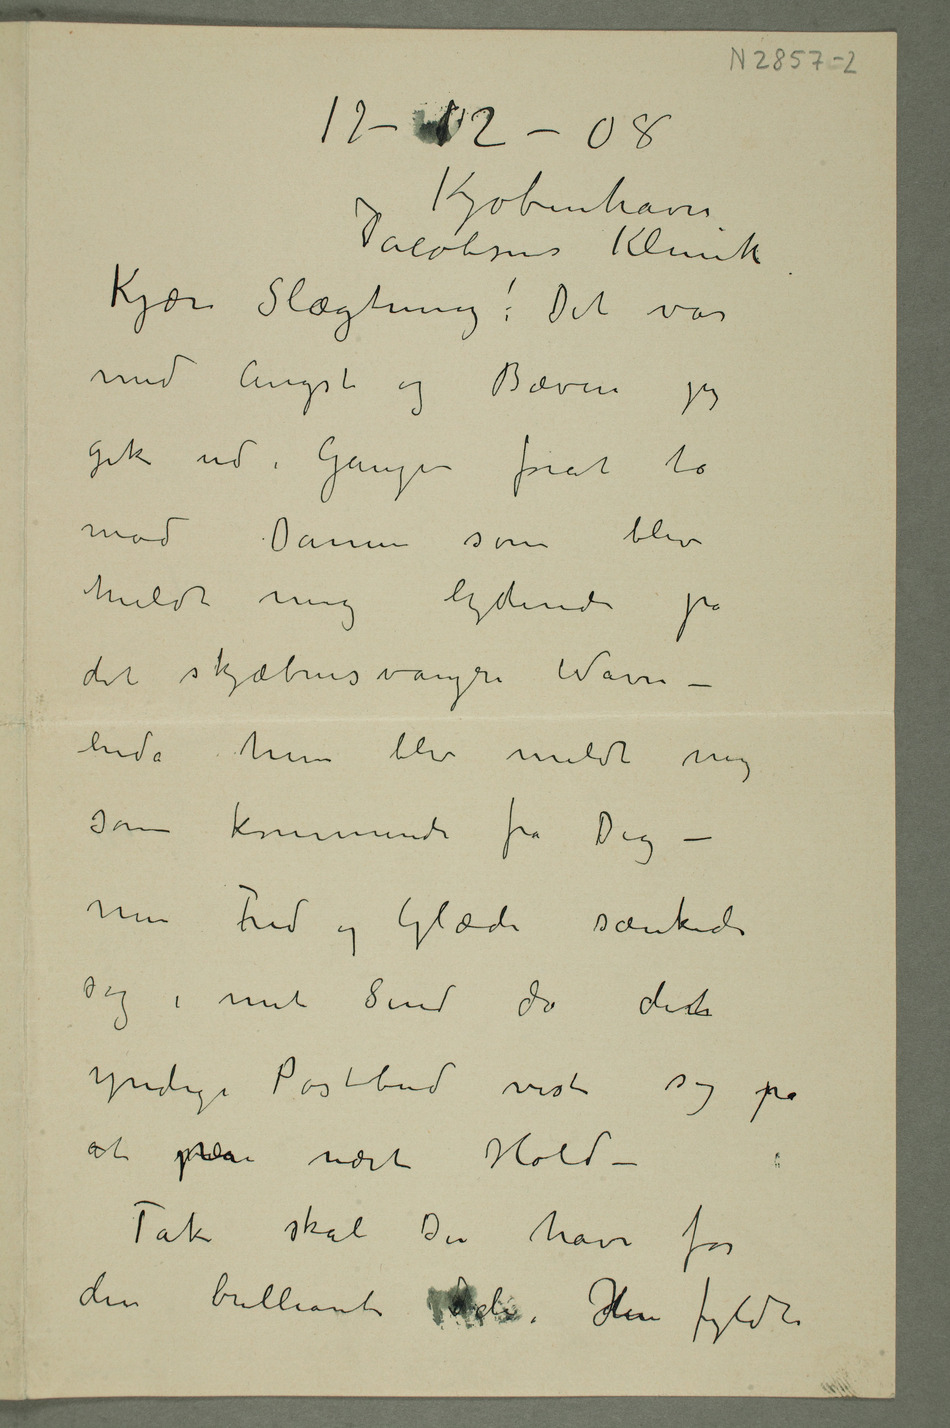 N 2857-2
12-12-08
Kjøbenhavn
Jacobsens Klinik
Kjære Slægtning! Det var
med Angst og Bæven jeg
gik ud i Gangen forat ta
mod Damen som blev
meldt mig lydende på
det skjæbnesvangre Navn –
enda hun blev meldt mig
som kommende fra Dig –
men Fred og Glæde sænkede
sig i mit Sind da det
yndige Postbud viste sig på
at nært Hold –
Tak skal Du have for
den brilliante Ide. Den fyldte